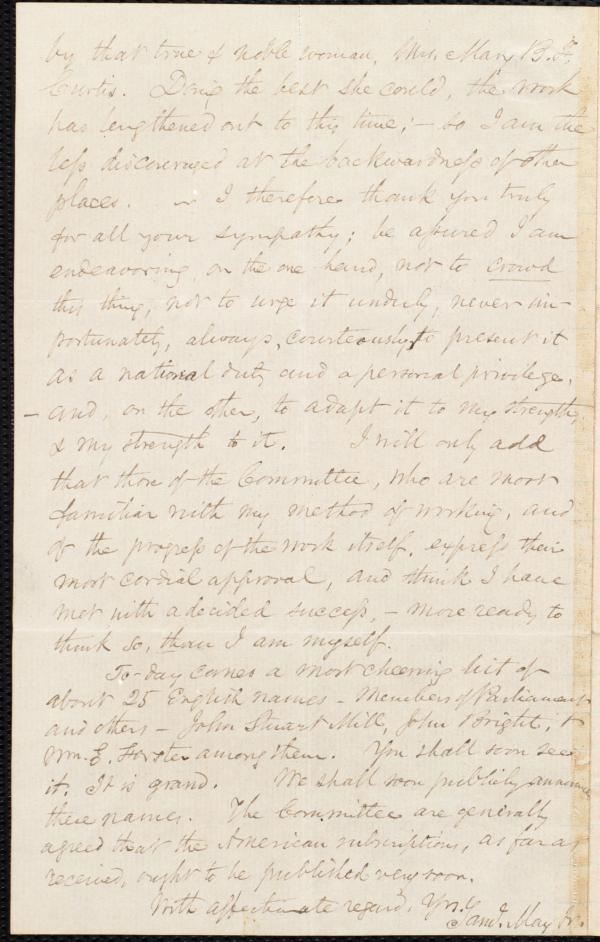 by that true & noble woman, Mrs. Mary B. F.
Curtis. Doing the best she could, the work
has lengthened out to this time; – so I am the
less discouraged at the backwardness of other
places. – I therefore thank you truly
for all your sympathy; be assured I am
endeavoring, on the one hand, not to crowd
this thing, not to urge it unduly, never im-
portunately, always, courteously, to present it
as a national duty and a personal privilege,
– and, on the other, to adapt it to my strength,
& my strength to it. I will only add
that those of the Committee, who are most
familiar with my method of working, and
of the progress of the work itself, express their
most cordial approval, and think I have
met with a decided success, – more ready to
think so, than I am myself.
To-day comes a most cheering list of
about 25 English names – Members of Parliament
and others – John Stuart Mill, John Bright, &
Wm. E. Forster among them. You shall soon see
it. It is grand. We shall soon publicly announce
these names. The Committee are generally
agreed that the American subscriptions, as far as
received, ought to be published very soon.
With affectionate regard, Yrs. Saml. May Jr.